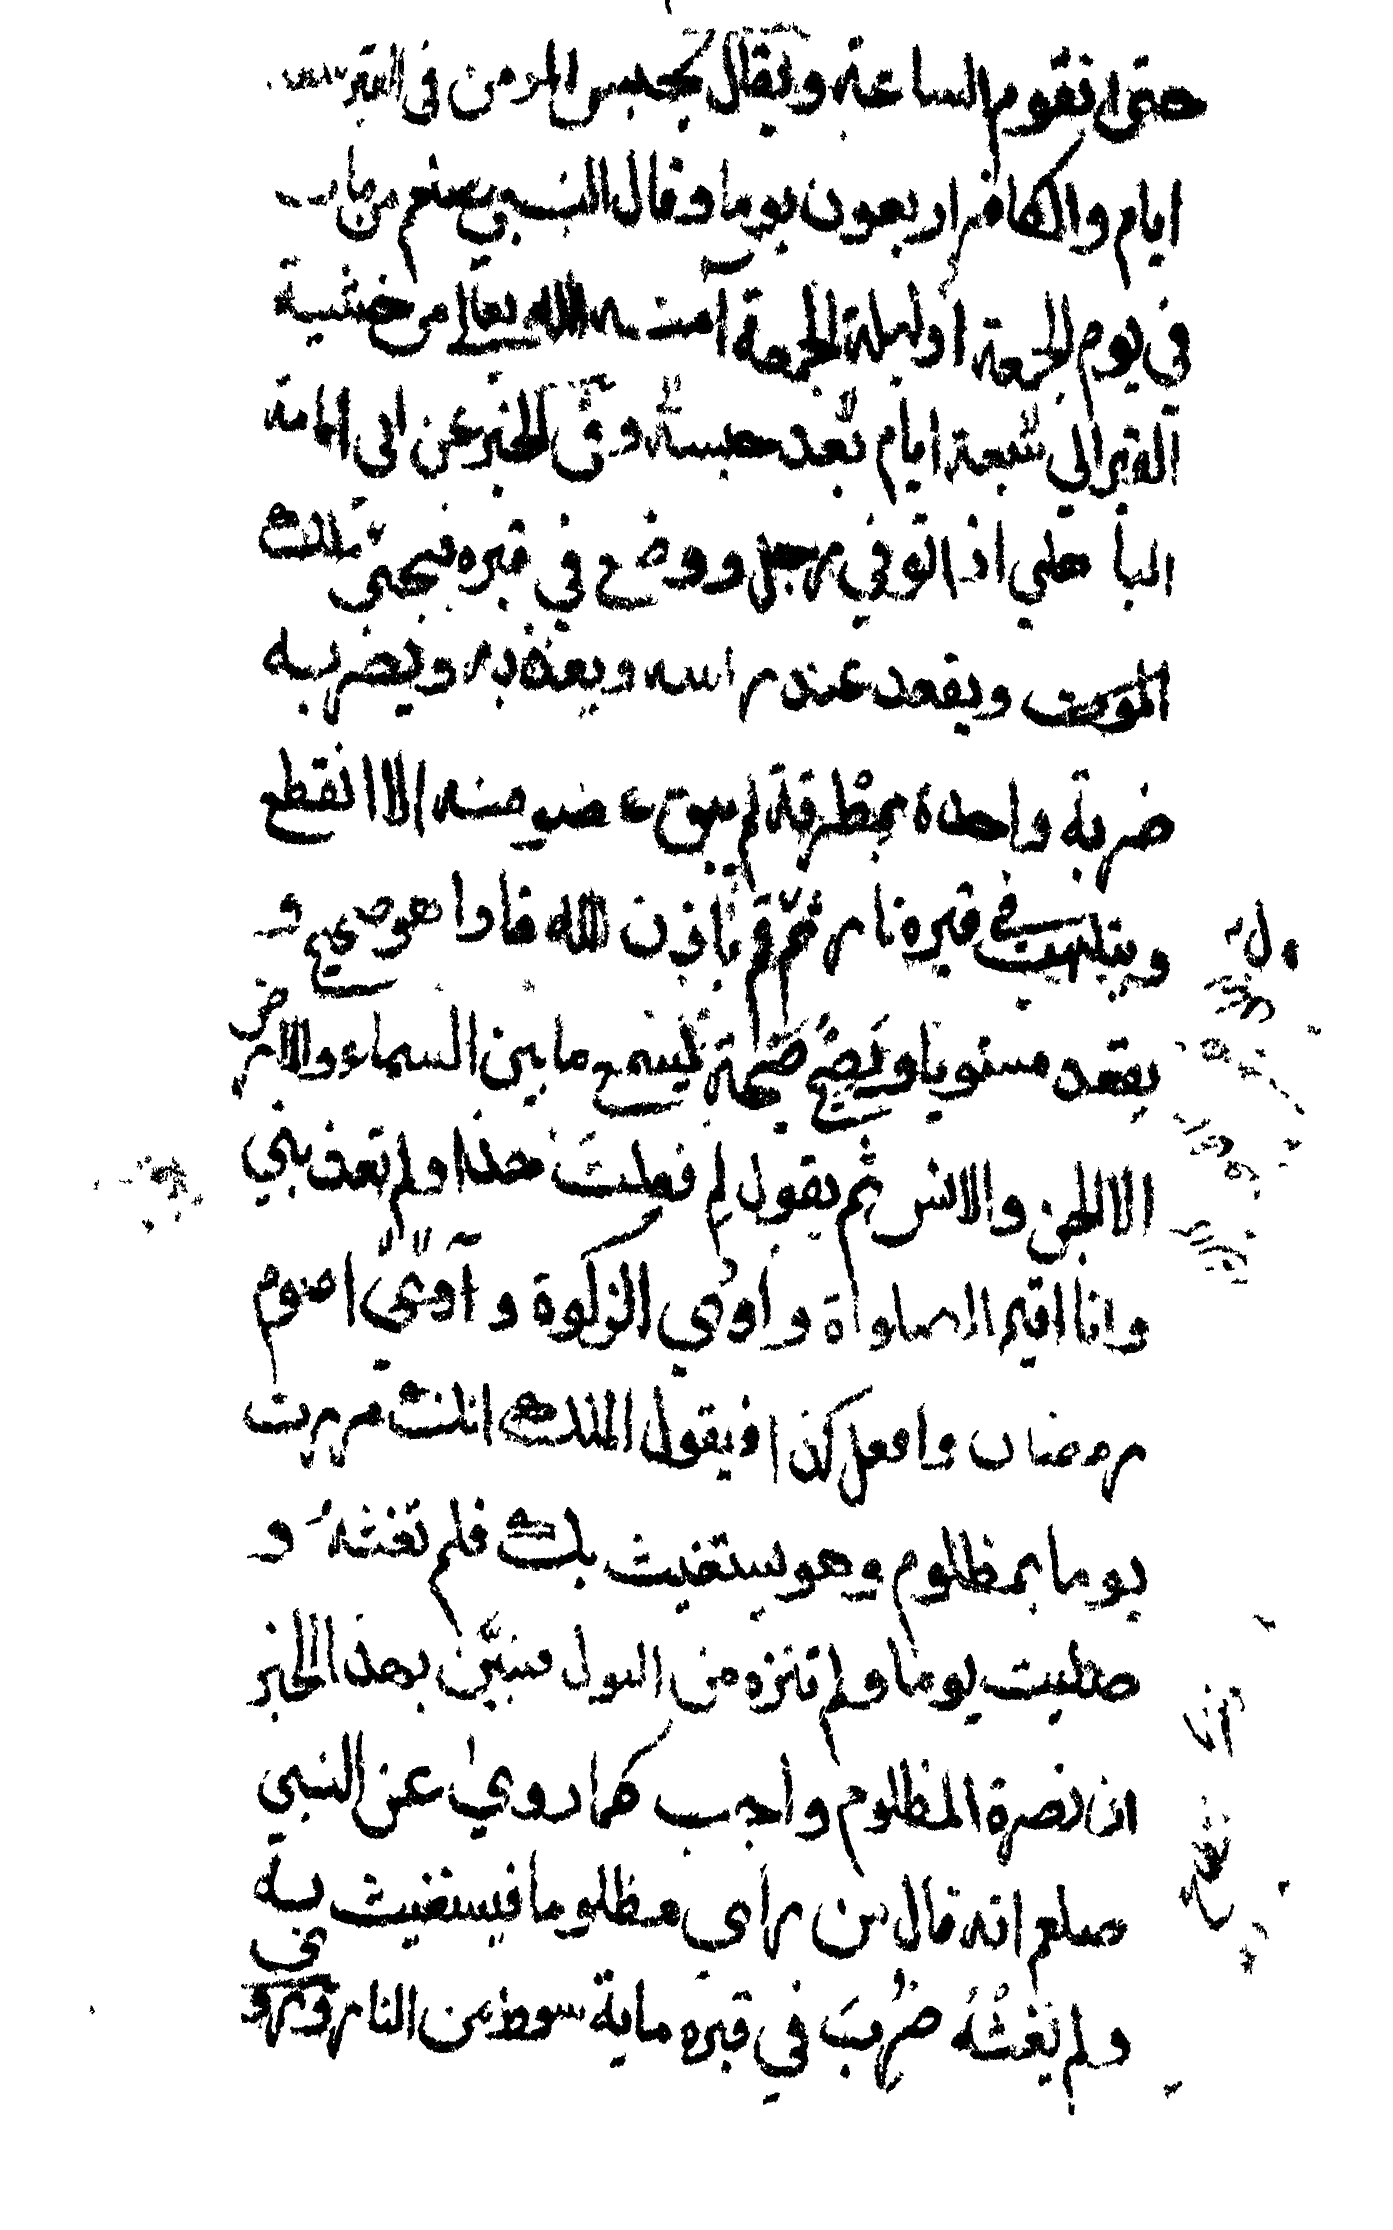 حتى ان تقوم الساعة ويقال يحبس المومن في القبر
ايام والكافر اربعون يوما وقال النبي صلعم من مات
في يوم الجمعة او ليلة الجمعة آمنه الله تعالى من خشية
القبر الى سبعة ايام بعد حبسه وفي الخبر عن ابي امامة
الباهلي اذا توفي رجل ووضع في قبره فيجئ ملك
الموت ويقعد عند راسه ويعذبه ويضربه
ضربة واحدة بمطرقة لم يبق عضو منه الا انقطع
ويتلهب في قبره نار ثم قم باذن الله فاذا هو صحيح و
يقعد مستويا ويصيح صيحة يسمع ما بين السماء والارض
الا الجن والانس ثم يقول لم فعلت هذا ولم تعذبني
وانا اقيم الصلواة واوتي الزكوة و اصوم
رمضان وافعل كذا فيقول الملك انك مررت
يوما بمظلوم وهو يستغيث بك فلم تغثه و
صليت يوما ولم تنزه من البول فتبين بهذا الخبر
ان نصرة المظلوم واجب كما روي عن النبي
صلعم انه قال من راى مظلوما فيستغيث به
ولم يغثه ضرب في قبره ماية سوط من النار وروي